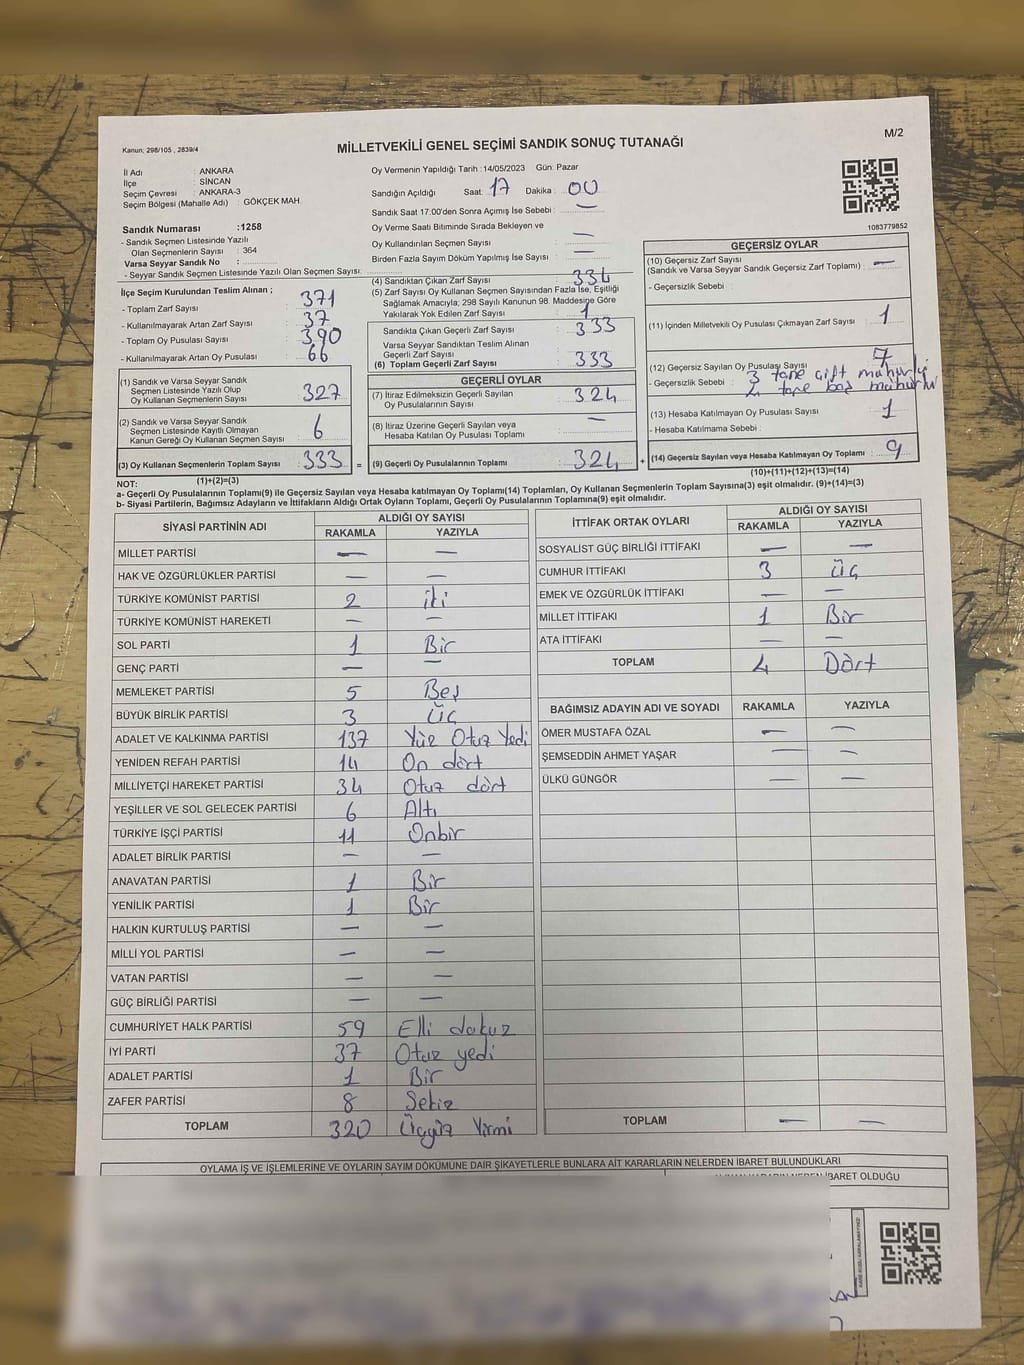 Kanun; 298/105 , 2839/4
MİLLETVEKİLİ GENEL SEÇİMİ SANDIK SONUÇ TUTANAĞI
M/2
İl Adı : ANKARA
İlçe : SİNCAN
Seçim Çevresi : ANKARA-3
Seçim Bölgesi (Mahalle Adı) : GÖKÇEK MAH.
Oy Vermenin Yapıldığı Tarih : 14/05/2023 Gün: Pazar
Sandığın Açıldığı Saat: 17 Dakika : 00
Sandık Saat 17:00'den Sonra Açımış İse Sebebi : —
Oy Verme Saati Bitiminde Sırada Bekleyen ve
Oy Kullandırılan Seçmen Sayısı —
Birden Fazla Sayım Döküm Yapılmış İse Sayısı : —
1083779852
Sandık Numarası :1258
- Sandık Seçmen Listesinde Yazılı
Olan Seçmenlerin Sayısı : 364
Varsa Seyyar Sandık No :
- Seyyar Sandık Seçmen Listesinde Yazılı Olan Seçmen Sayısı:
İlçe Seçim Kurulundan Teslim Alınan ;
- Toplam Zarf Sayısı : 371
- Kullanılmayarak Artan Zarf Sayısı : 37
- Toplam Oy Pusulası Sayısı : 390
- Kullanılmayarak Artan Oy Pusulası : 66
(1) Sandık ve Varsa Seyyar Sandık
Seçmen Listesinde Yazılı Olup
Oy Kullanan Seçmenlerin Sayısı : 327
(2) Sandık ve Varsa Seyyar Sandık
Seçmen Listesinde Kayıtlı Olmayan
Kanun Gereği Oy Kullanan Seçmen Sayısı : 6
(3) Oy Kullanan Seçmenlerin Toplam Sayısı : 333
(1)+(2)=(3)
(4) Sandıktan Çıkan Zarf Sayısı : 334
(5) Zarf Sayısı Oy Kullanan Seçmen Sayısından Fazla İse, Eşitliği
Sağlamak Amacıyla; 298 Sayılı Kanunun 98. Maddesine Göre
Yakılarak Yok Edilen Zarf Sayısı : 1
Sandıkta Çıkan Geçerli Zarf Sayısı : 333
Varsa Seyyar Sandıktan Teslim Alınan
Geçerli Zarf Sayısı :
(6) Toplam Geçerli Zarf Sayısı : 333
GEÇERLİ OYLAR
(7) İtiraz Edilmeksizin Geçerli Sayılan
Oy Pusulalarının Sayısı : 324
(8) İtiraz Üzerine Geçerli Sayılan veya
Hesaba Katılan Oy Pusulası Toplamı : —
= (9) Geçerli Oy Pusulalarının Toplamı : 324 +
GEÇERSİZ OYLAR
(10) Geçersiz Zarf Sayısı
(Sandık ve Varsa Seyyar Sandık Geçersiz Zarf Toplamı) : —
- Geçersizlik Sebebi :
(11) İçinden Milletvekili Oy Pusulası Çıkmayan Zarf Sayısı : 1
(12) Geçersiz Sayılan Oy Pusulası Sayısı : 7
- Geçersizlik Sebebi : 3 tane çift mühürlü
tane boş
(13) Hesaba Katılmayan Oy Pusulası Sayısı : 1
- Hesaba Katılmama Sebebi :
(14) Geçersiz Sayılan veya Hesaba Katılmayan Oy Toplamı : 9
(10)+(11)+(12)+(13)=(14)
NOT:
a- Geçerli Oy Pusulalarının Toplamı(9) ile Geçersiz Sayılan veya Hesaba katılmayan Oy Toplamı(14) Toplamları, Oy Kullanan Seçmenlerin Toplam Sayısına(3) eşit olmalıdır. (9)+(14)=(3)
b- Siyasi Partilerin, Bağımsız Adayların ve İttifakların Aldığı Ortak Oyların Toplamı, Geçerli Oy Pusulalarının Toplamına(9) eşit olmalıdır.
SİYASİ PARTİNİN ADI ALDIĞI OY SAYISI
RAKAMLA YAZIYLA
MİLLET PARTİSİ — —
HAK VE ÖZGÜRLÜKLER PARTİSİ — —
TÜRKİYE KOMÜNİST PARTİSİ 2 iki
TÜRKİYE KOMÜNİST HAREKETİ — —
SOL PARTİ 1 Bir
GENÇ PARTİ — —
MEMLEKET PARTİSİ 5 Beş
BÜYÜK BİRLİK PARTİSİ 3 Üç
ADALET VE KALKINMA PARTİSİ 137 Yüz Otuz Yedi
YENİDEN REFAH PARTİSİ 14 On dört
MİLLİYETÇİ HAREKET PARTİSİ 34 Otuz dört
YEŞİLLER VE SOL GELECEK PARTİSİ 6 Altı
TÜRKİYE İŞÇİ PARTİSİ 11 Onbir
ADALET BİRLİK PARTİSİ — —
ANAVATAN PARTİSİ 1 Bir
YENİLİK PARTİSİ 1 Bir
HALKIN KURTULUŞ PARTİSİ — —
MİLLİ YOL PARTİSİ — —
VATAN PARTİSİ — —
GÜÇ BİRLİĞİ PARTİSİ — —
CUMHURİYET HALK PARTİSİ 59 Elli dokuz
İYİ PARTİ 37 Otuz yedi
ADALET PARTİSİ 1 Bir
ZAFER PARTİSİ 8 Sekiz
TOPLAM 320 Üçyüz Yirmi
İTTİFAK ORTAK OYLARI ALDIĞI OY SAYISI
RAKAMLA YAZIYLA
SOSYALİST GÜÇ BİRLİĞİ İTTİFAKI — —
CUMHUR İTTİFAKI 3 Üç
EMEK VE ÖZGÜRLÜK İTTİFAKI — —
MİLLET İTTİFAKI 1 Bir
ATA İTTİFAKI — —
TOPLAM 4 Dört
BAĞIMSIZ ADAYIN ADI VE SOYADI RAKAMLA YAZIYLA
ÖMER MUSTAFA ÖZAL — —
ŞEMSEDDİN AHMET YAŞAR — —
ÜLKÜ GÜNGÖR — —
TOPLAM — —
OYLAMA İŞ VE İŞLEMLERİNE VE OYLARIN SAYIM DÖKÜMÜNE DAİR ŞİKAYETLERLE BUNLARA AİT KARARLARIN NELERDEN İBARET BULUNDUKLARI
İBARET OLDUĞU